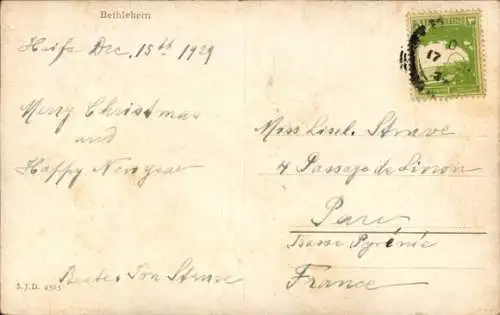 Bethlehem
Haifa Dec. 15th 1929
Merry Christmas
and
Happy New year
Miss Lisl. Struve
4 Passage de
Pau
Basse Pyrénée
France
Struve
S.J.D.
17